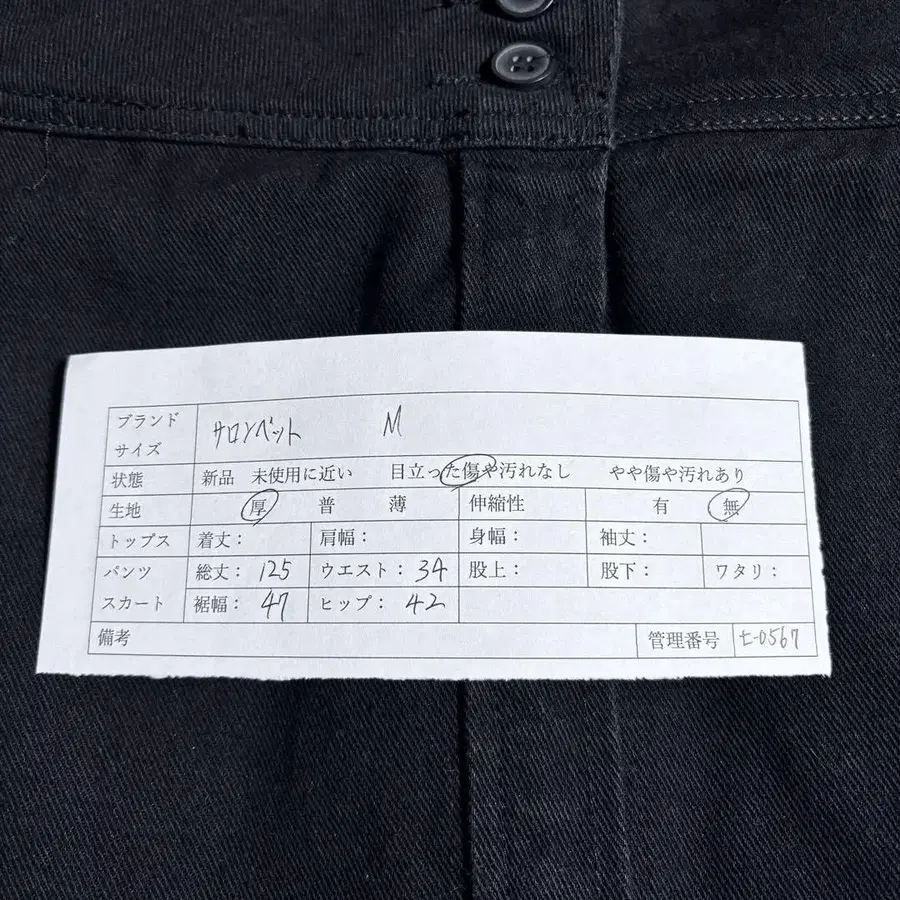 ブランド
サイズ
サロンペット M
状態 新品 未使用に近い 目立った傷や汚れなし やや傷や汚れあり
生地 厚 普 薄 伸縮性 有 無
トップス 着丈： 肩幅： 身幅： 袖丈：
パンツ 総丈：125 ウエスト：34 股上： 股下： ワタリ：
スカート 裾幅：47 ヒップ：42
備考 管理番号 t-0567